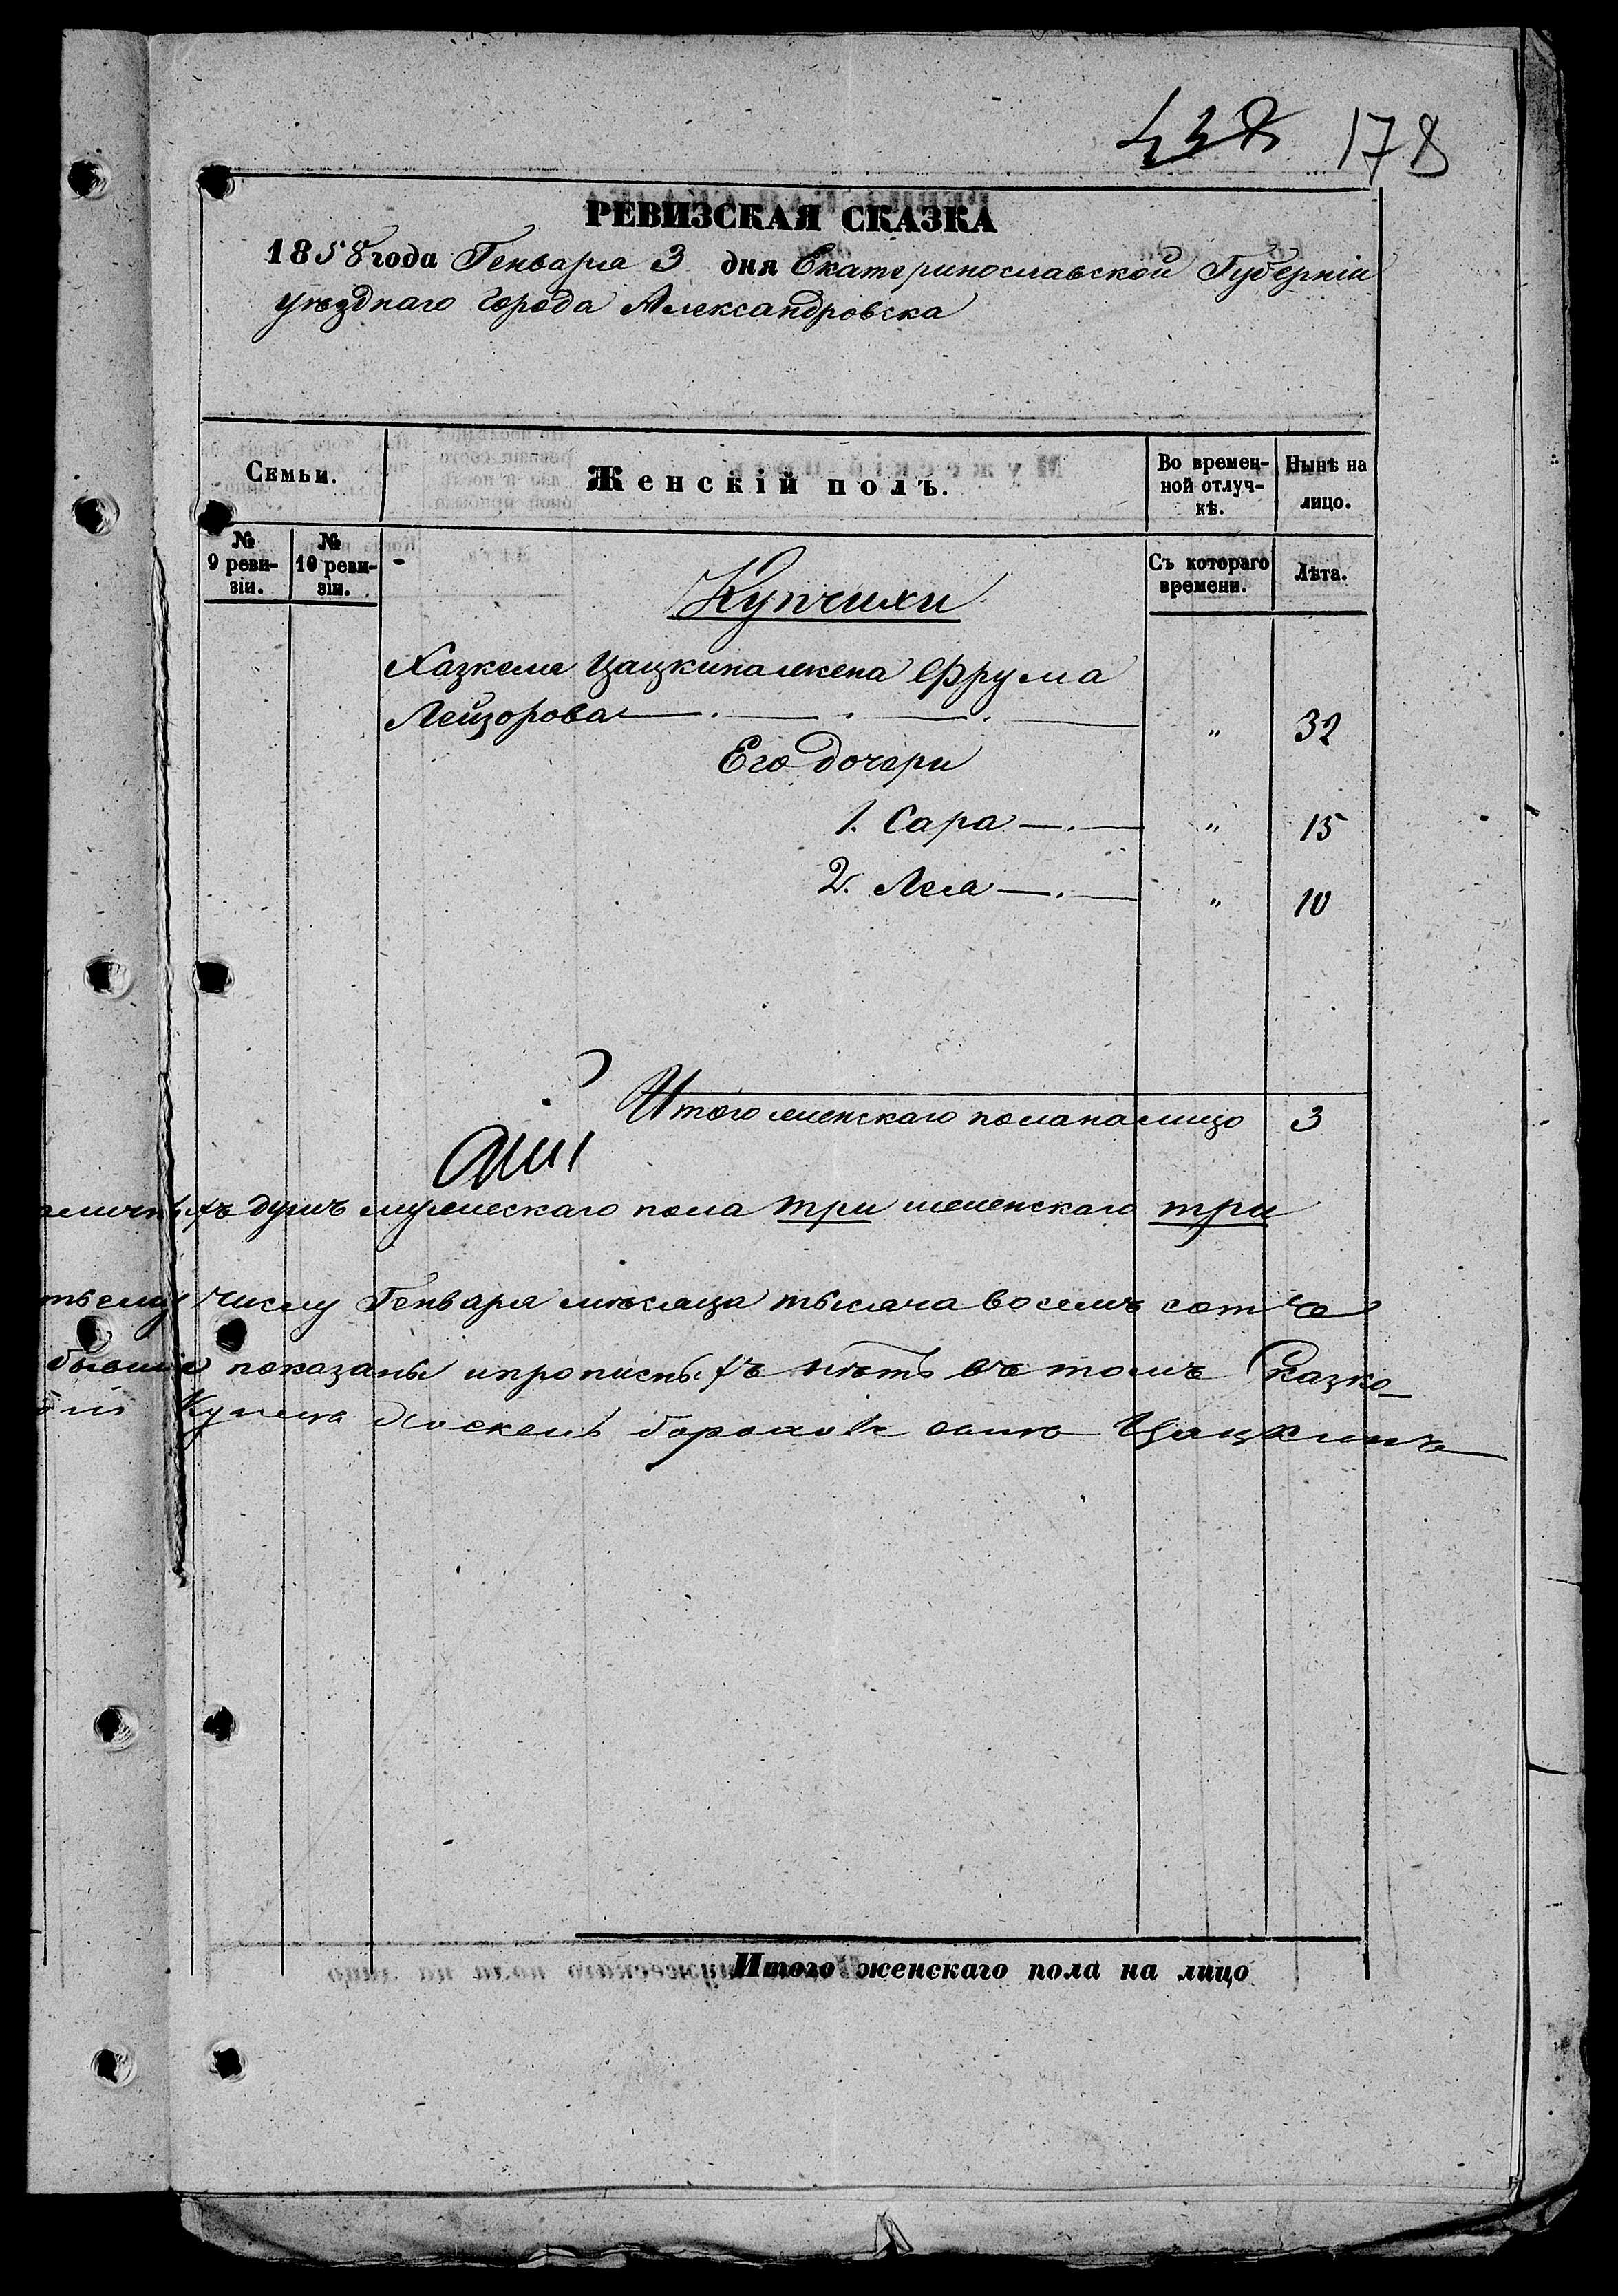 178
РЕВИЗСКАЯ СКАЗКА
1858 года Генваря 3 дня Екатеринославской Губерніи
уѣзднаго города Александровска
Семьи.
Женскій полъ.
Во времен-
ной отлуч-
кѣ.
Нынѣ на
лицо.
№
9 реви-
зіи.
№
10 реви-
зіи.
Съ котораго
времени.
Лѣта.
Купчихи
Хазкеля Цацкина жена Фрума
Лейзорова " 32
Его дочери
1. Сара " 15
2. Лея " 10
Итого женскаго пола на лицо 3
душъ мужескаго пола три и женскаго три
числу Генваря мѣсяца тысяча восемь сотъ
показаны и прописныхъ нѣтъ въ томъ Сказко-
Цацкинъ
Итого женскаго пола на лицо